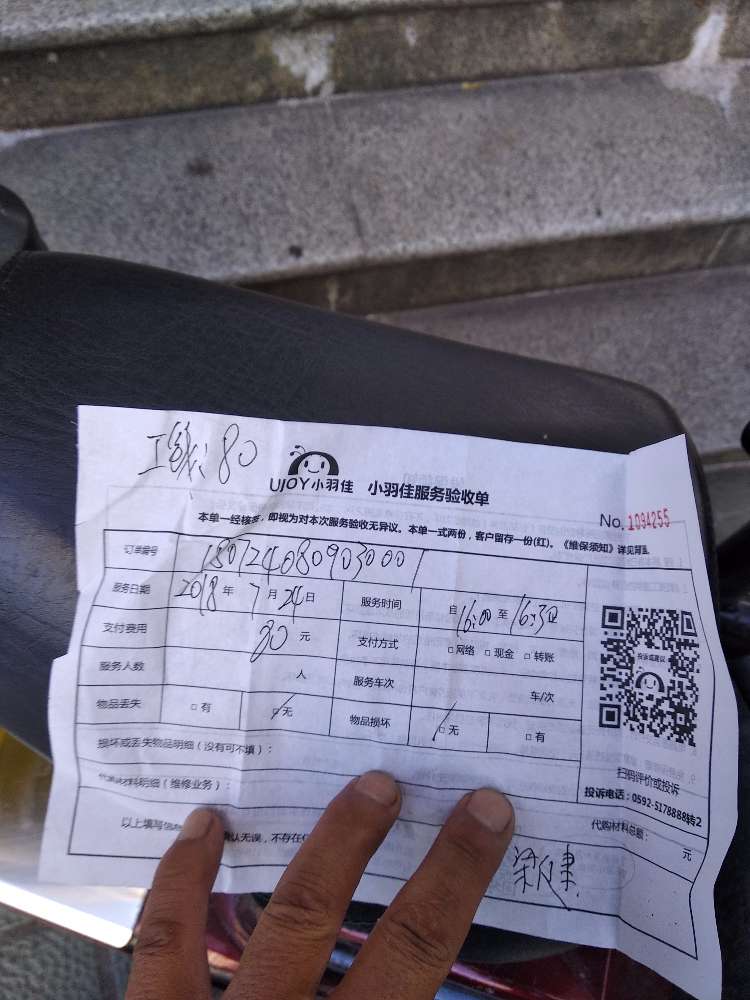 工钱:80
UJOY小羽佳 小羽佳服务验收单
No. 1094255
本单一经核，即视为对本次服务验收无异议。本单一式两份，客户留存一份(红)。《维保须知》详见背面
订单编号 1807240809030001
服务日期 2018年7月24日 服务时间 自16:00至16:30
支付费用 80元 支付方式 □网络 □现金 □转账
服务人数 人 服务车次 车/次
物品丢失 □有 □无 物品损坏 □无 □有
投诉或建议
损坏或丢失物品明细（没有可不填）：
材料明细（维修业务）：
扫码评价或投诉
投诉电话：0592-5178888转2
代购材料总额： 元
以上填写信 确认无误，不存在